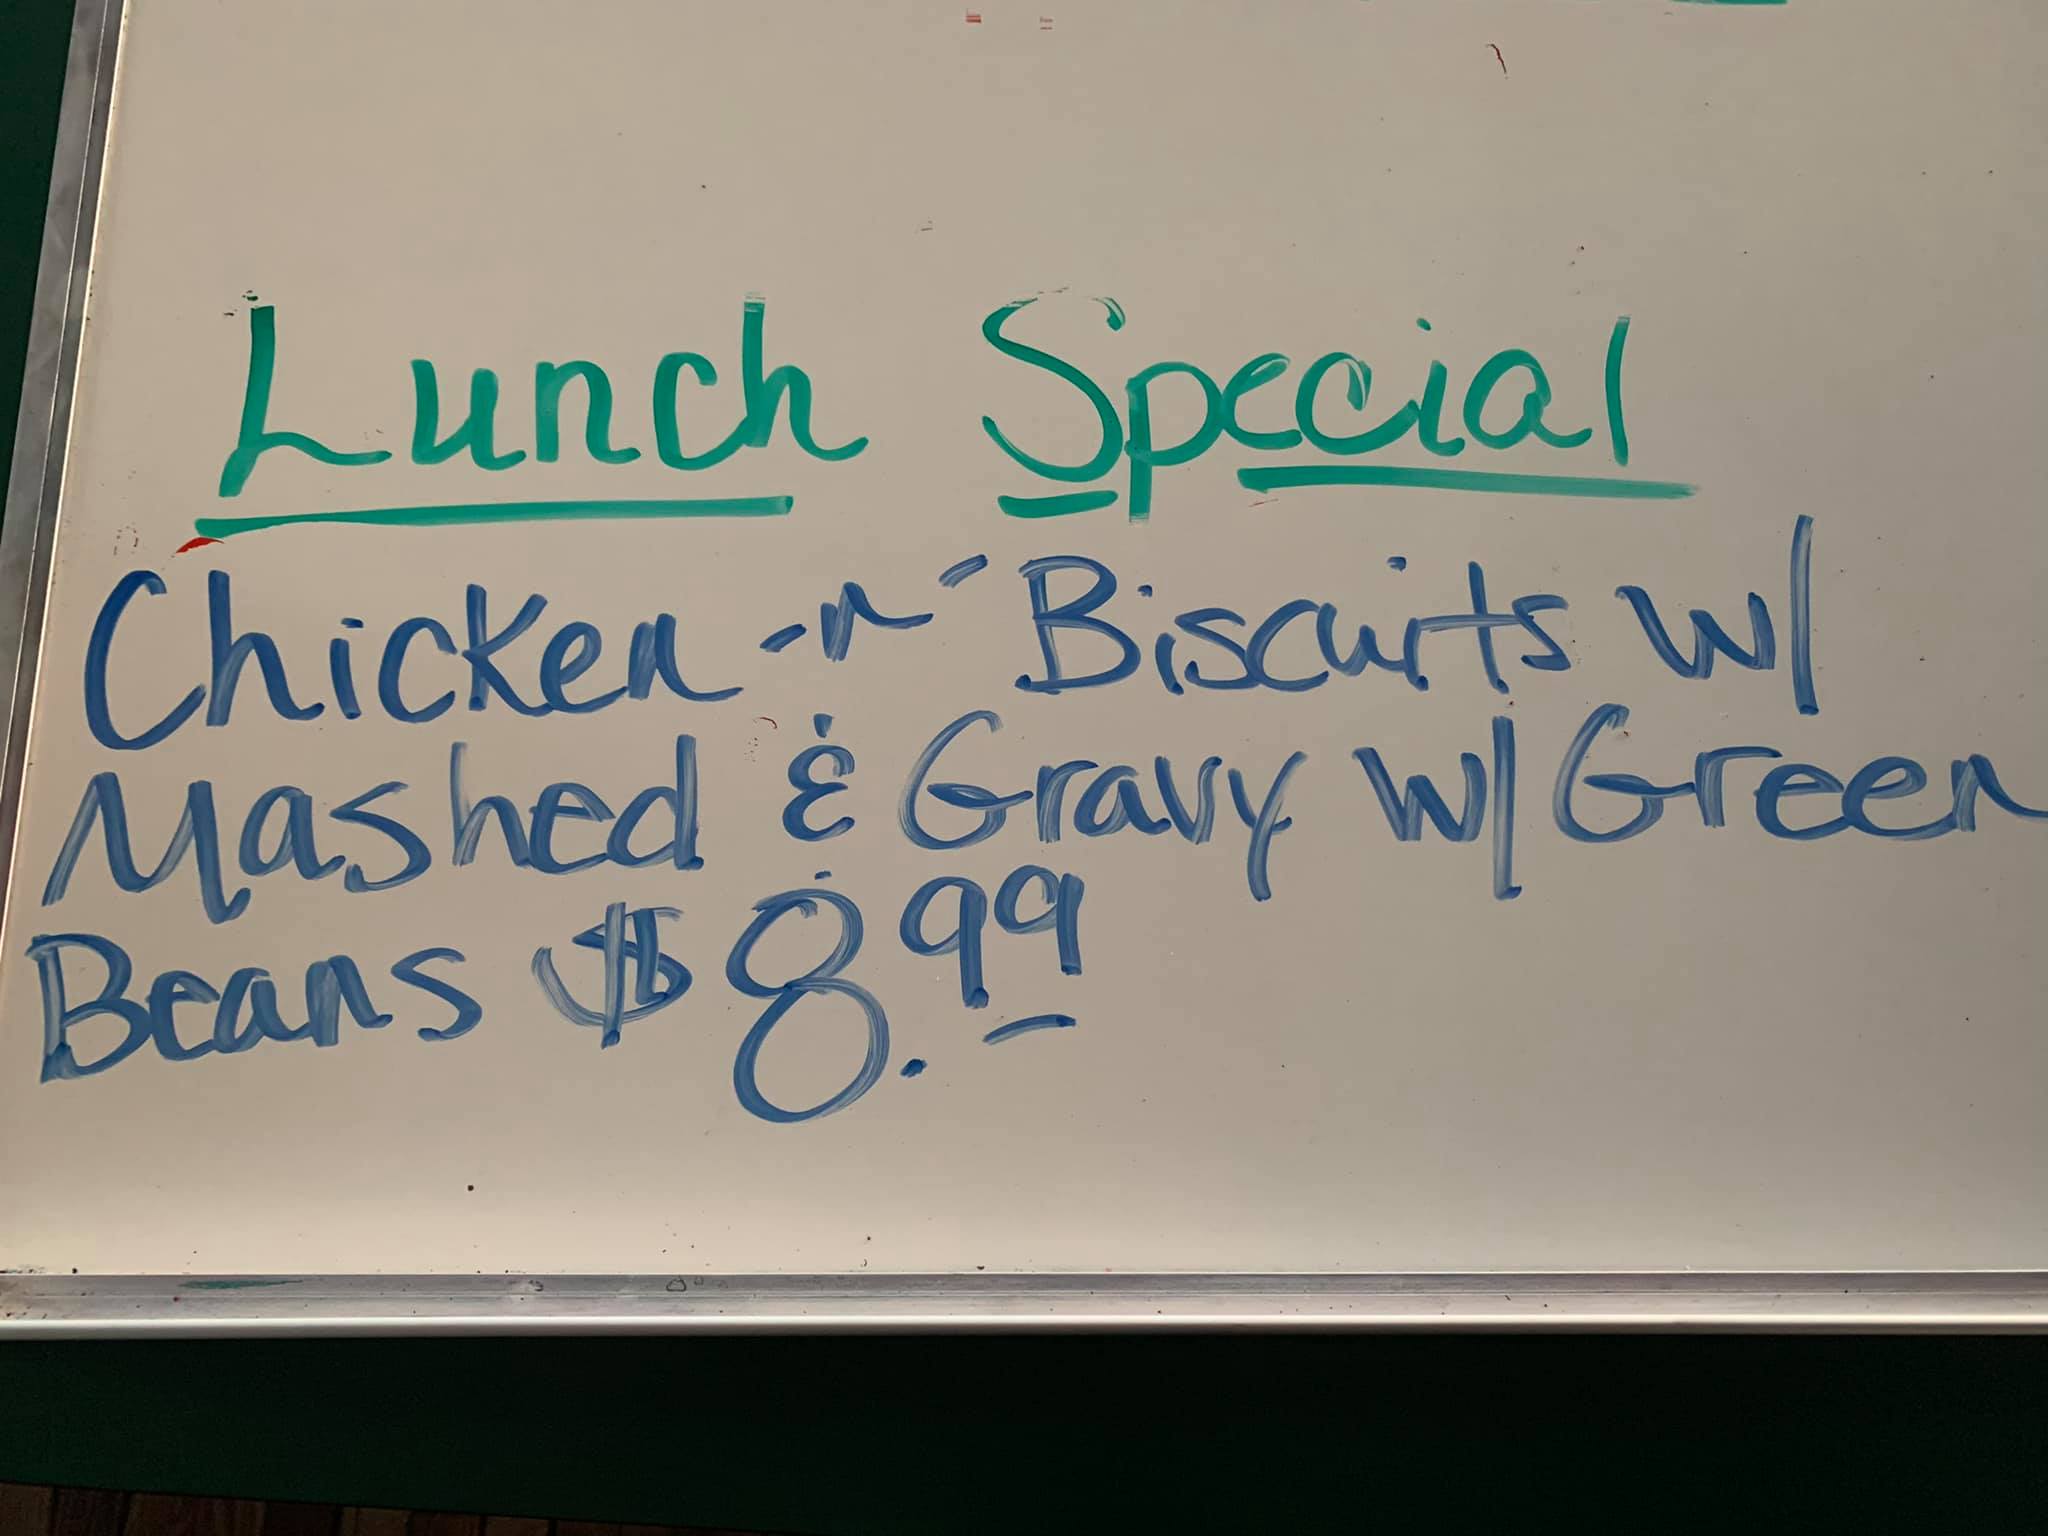 Lunch Special
Chicken -n- Biscuits w/
Mashed & Gravy w/ Green
Beans $8.99